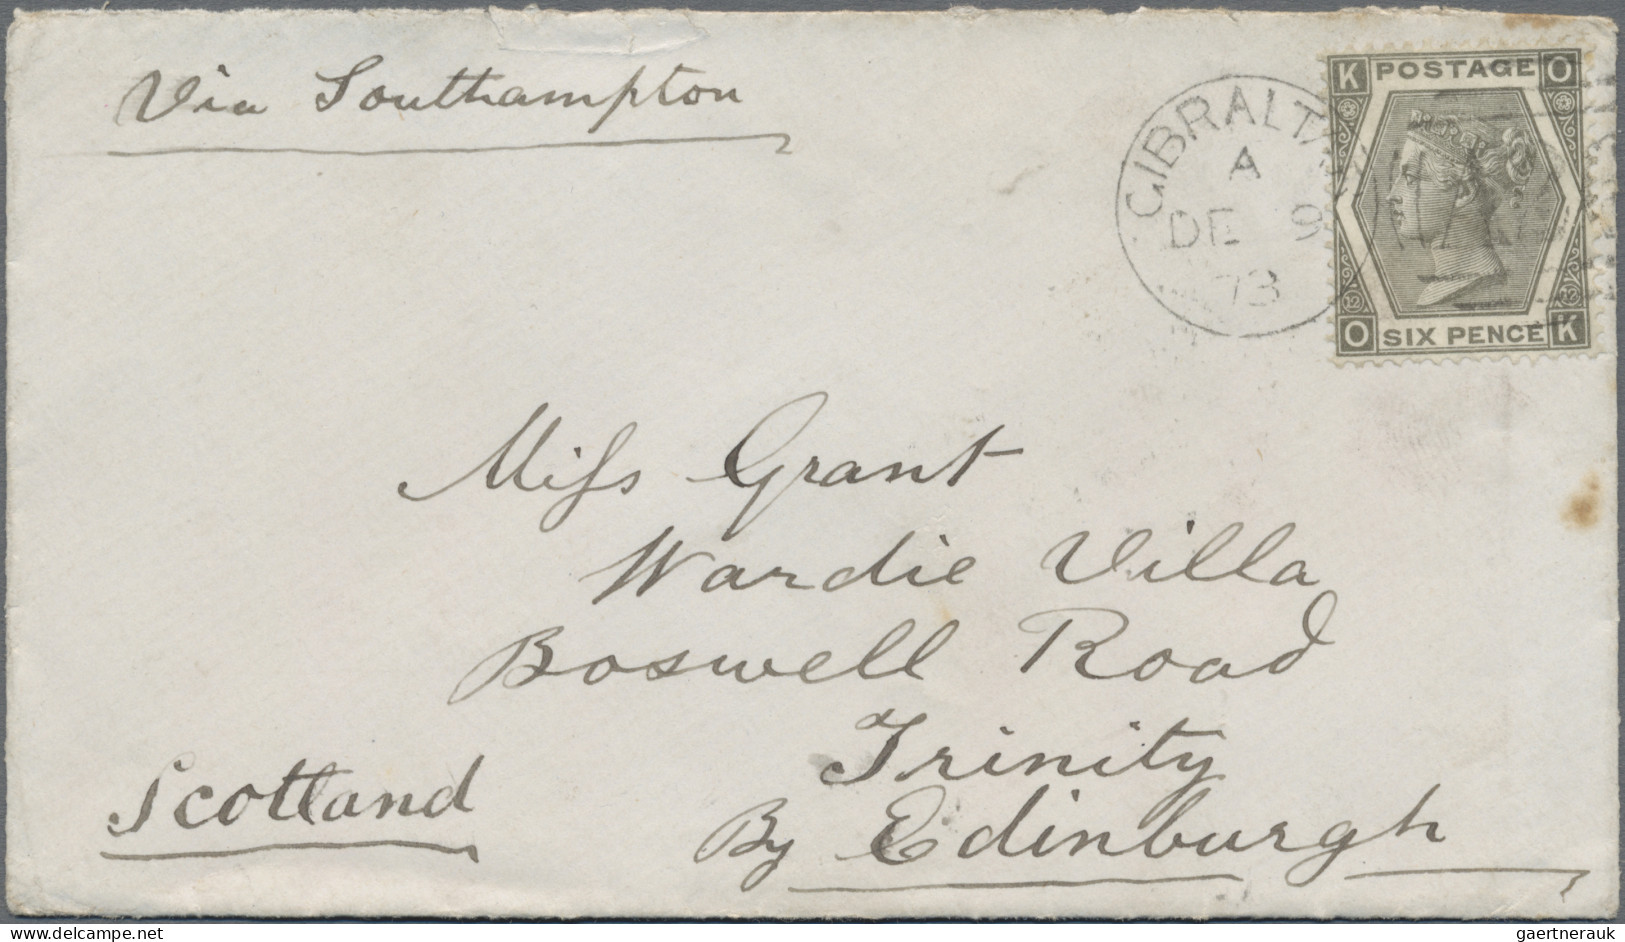 Via Southampton
GIBRALTAR
A
DE 9
73
K POSTAGE O
12 12
O SIX PENCE K
Miſs Grant
Wardie Villa
Boswell Road
Trinity
By Edinburgh
Scotland
www.delcampe.net
gaertnerauk